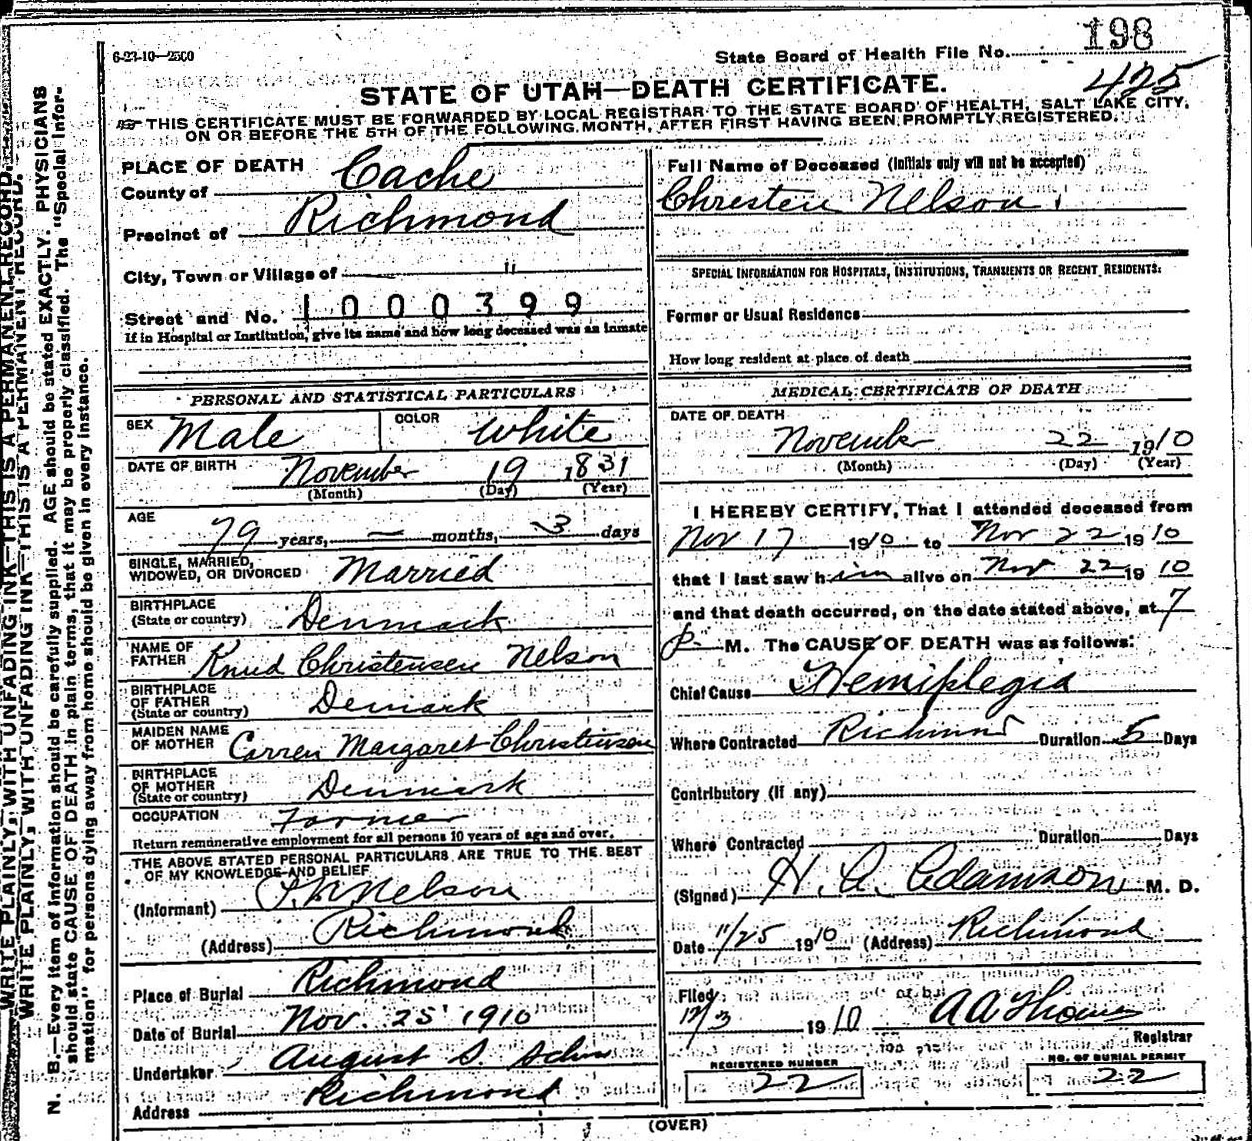 198
6-23-10—2500
State Board of Health File No.
425
STATE OF UTAH—DEATH CERTIFICATE.
THIS CERTIFICATE MUST BE FORWARDED BY LOCAL REGISTRAR TO THE STATE BOARD OF HEALTH, SALT LAKE CITY,
ON OR BEFORE THE 5TH OF THE FOLLOWING MONTH, AFTER FIRST HAVING BEEN PROMPTLY REGISTERED.
PLACE OF DEATH
County of Cache
Precinct of Richmond
City, Town or Village of "
Street and No. 1000399
If in Hospital or Institution, give its name and how long deceased was an inmate
PERSONAL AND STATISTICAL PARTICULARS
SEX Male COLOR White
DATE OF BIRTH November 19 1831
(Month) (Day) (Year)
AGE
79 years, — months, 3 days
SINGLE, MARRIED,
WIDOWED, OR DIVORCED Married
BIRTHPLACE
(State or country) Denmark
NAME OF
FATHER Knud Christensen Nelson
BIRTHPLACE
OF FATHER
(State or country) Demark
MAIDEN NAME
OF MOTHER Carren Margaret Christensen
BIRTHPLACE
OF MOTHER
(State or country) Denmark
OCCUPATION Farmer
Return remunerative employment for all persons 10 years of age and over.
THE ABOVE STATED PERSONAL PARTICULARS ARE TRUE TO THE BEST
OF MY KNOWLEDGE AND BELIEF
(Informant) Nelson
(Address) Richmond
Place of Burial Richmond
Date of Burial Nov. 25 1910
Undertaker August S.
Address Richmond
Full Name of Deceased (Initials only will not be accepted)
Christen Nelson.
SPECIAL INFORMATION FOR HOSPITALS, INSTITUTIONS, TRANSIENTS OR RECENT RESIDENTS:
Former or Usual Residence
How long resident at place of death
MEDICAL CERTIFICATE OF DEATH
DATE OF DEATH
November 22 1910
(Month) (Day) (Year)
I HEREBY CERTIFY, That I attended deceased from
Nov 17 1910 to Nov 22 1910
that I last saw him alive on Nov 22 1910
and that death occurred, on the date stated above, at 7
P. M. The CAUSE OF DEATH was as follows:
Chief Cause Hemiplegia
Where Contracted Richmond Duration 5 Days
Contributory (if any)
Where Contracted Duration Days
(Signed) H. A. Adamson M. D.
Date 11/25 1910 (Address) Richmond
Filed
12/3 1910 A A Thomas
Registrar
REGISTERED NUMBER
22
NO. OF BURIAL PERMIT
22
(OVER)
WRITE PLAINLY, WITH UNFADING INK—THIS IS A PERMANENT RECORD.
WRITE PLAINLY, WITH UNFADING INK—THIS IS A PERMANENT RECORD.
N. B.—Every item of information should be carefully supplied. AGE should be stated EXACTLY. PHYSICIANS
should state CAUSE OF DEATH in plain terms, that it may be properly classified. The "Special Infor-
mation" for persons dying away from home should be given in every instance.